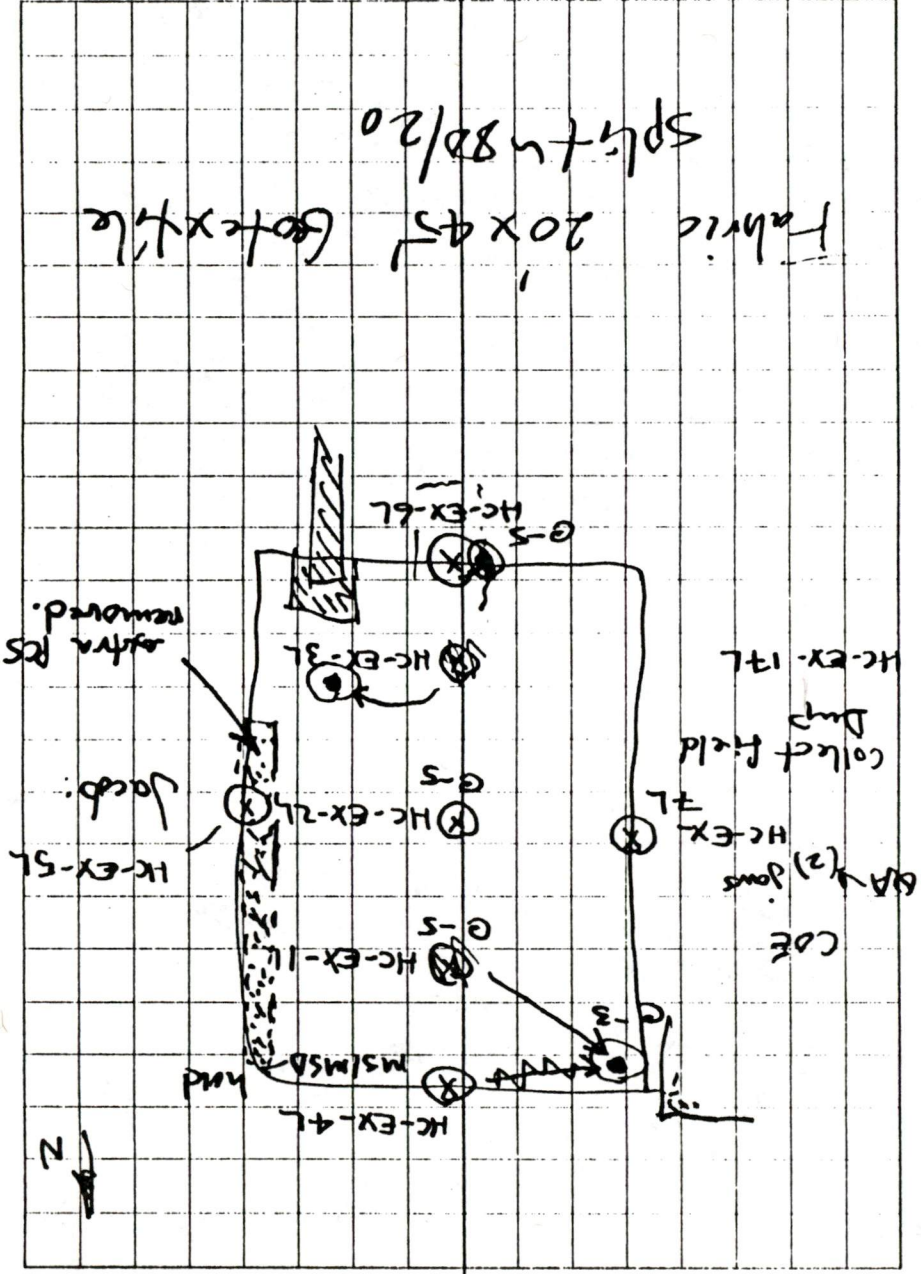 N
HC-EX-4L
hold
MS/MSD
@-3
COE
HC-EX-1L
@-5
QA (2) jars
HC-EX-
7L
HC-EX-5L
HC-EX-2L
@-5
Jacob.
Collect field
Dup
HC-EX-17L
HC-EX-3L
extra PCS
removed.
@-5
HC-EX-6L
Fabric 20' x 45' Geotextile
split 80/20